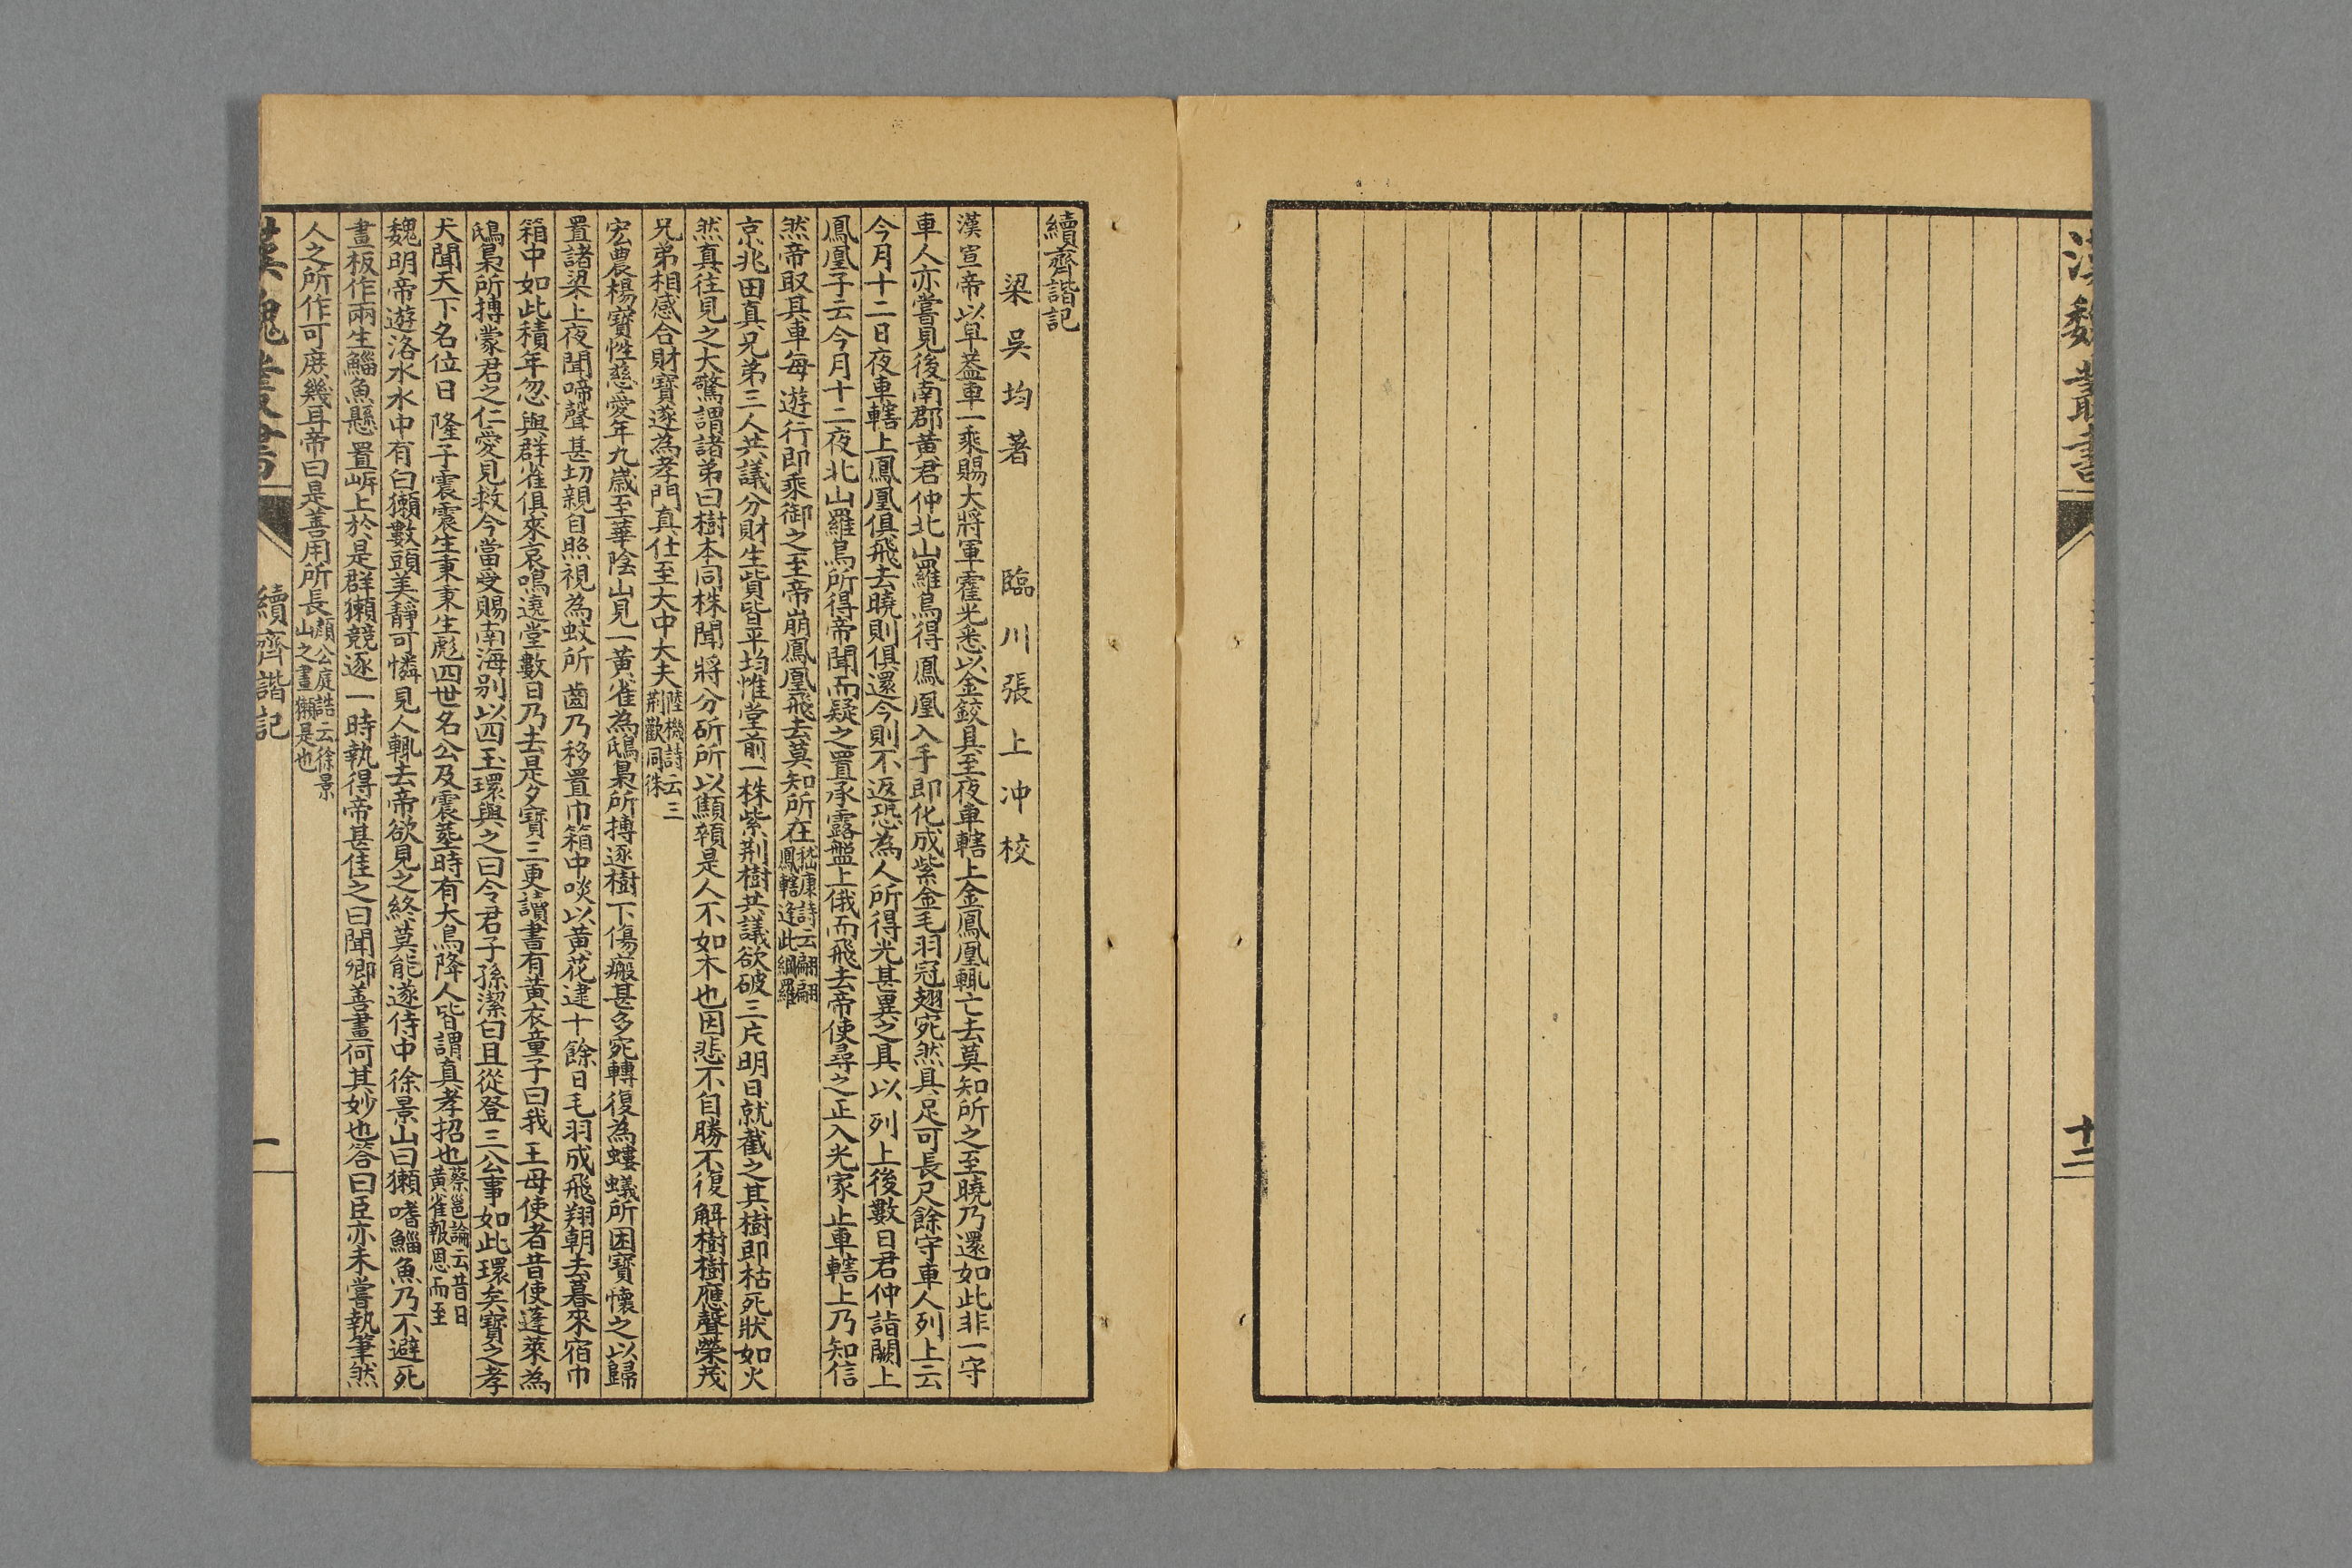 漢魏叢書
十二
續齊諧記
梁吳均著　臨川張上冲校
漢宣帝以皁葢車一乘賜大將軍霍光悉以金鉸具至夜車轄上金鳳凰輒亡去莫知所之至曉乃還如此非一守
車人亦嘗見後南郡黃君仲北山羅鳥得鳳凰入手即化成紫金毛羽冠翅宛然具足可長尺餘守車人列上云
今月十二日夜車轄上鳳凰俱飛去曉則俱還今則不返恐為人所得光甚異之具以列上後數日君仲詣闕上
鳳凰子云今月十二夜北山羅鳥所得帝聞而疑之置承露盤上俄而飛去帝使尋之正入光家止車轄上乃知信
然帝取其車每遊行即乘御之至帝崩鳳凰飛去莫知所在嵇康詩云翩翩鳳轄逢此網羅
京兆田真兄弟三人共議分財生貲皆平均惟堂前一株紫荆樹共議欲破三片明日就截之其樹即枯死狀如火
然真往見之大驚謂諸弟曰樹本同株聞將分斫所以顦顇是人不如木也因悲不自勝不復解樹樹應聲榮茂
兄弟相感合財寶遂為孝門真仕至大中大夫陸機詩云三荆歡同株
宏農楊寶性慈愛年九歲至華陰山見一黃雀為鴟梟所搏逐樹下傷瘢甚多宛轉復為螻蟻所困寶懷之以歸
置諸梁上夜聞啼聲甚切親自照視為蚊所嚙乃移置巾箱中啖以黃花逮十餘日毛羽成飛翔朝去暮來宿巾
箱中如此積年忽與群雀俱來哀鳴遶堂數日乃去是夕寶三更讀書有黃衣童子曰我王母使者昔使蓬萊為
鴟梟所搏蒙君之仁愛見救今當受賜南海别以四玉環與之曰令君子孫潔白且從登三公事如此環矣寶之孝
大聞天下名位日隆子震震生秉秉生彪四世名公及震塟時有大鳥降人皆謂真孝招也蔡邕論云昔日黃雀報恩而至
魏明帝遊洛水水中有白獺數頭美靜可憐見人輒去帝欲見之終莫能遂侍中徐景山曰獺嗜鯔魚乃不避死
畫板作兩生鯔魚懸置㟁上於是群獺競逐一時執得帝甚佳之曰聞卿善畫何其妙也答曰臣亦未嘗執筆然
人之所作可庶幾耳帝曰是善用所長顏公庭誥云徐景山之畫獺是也
漢魏叢書　續齊諧記　一